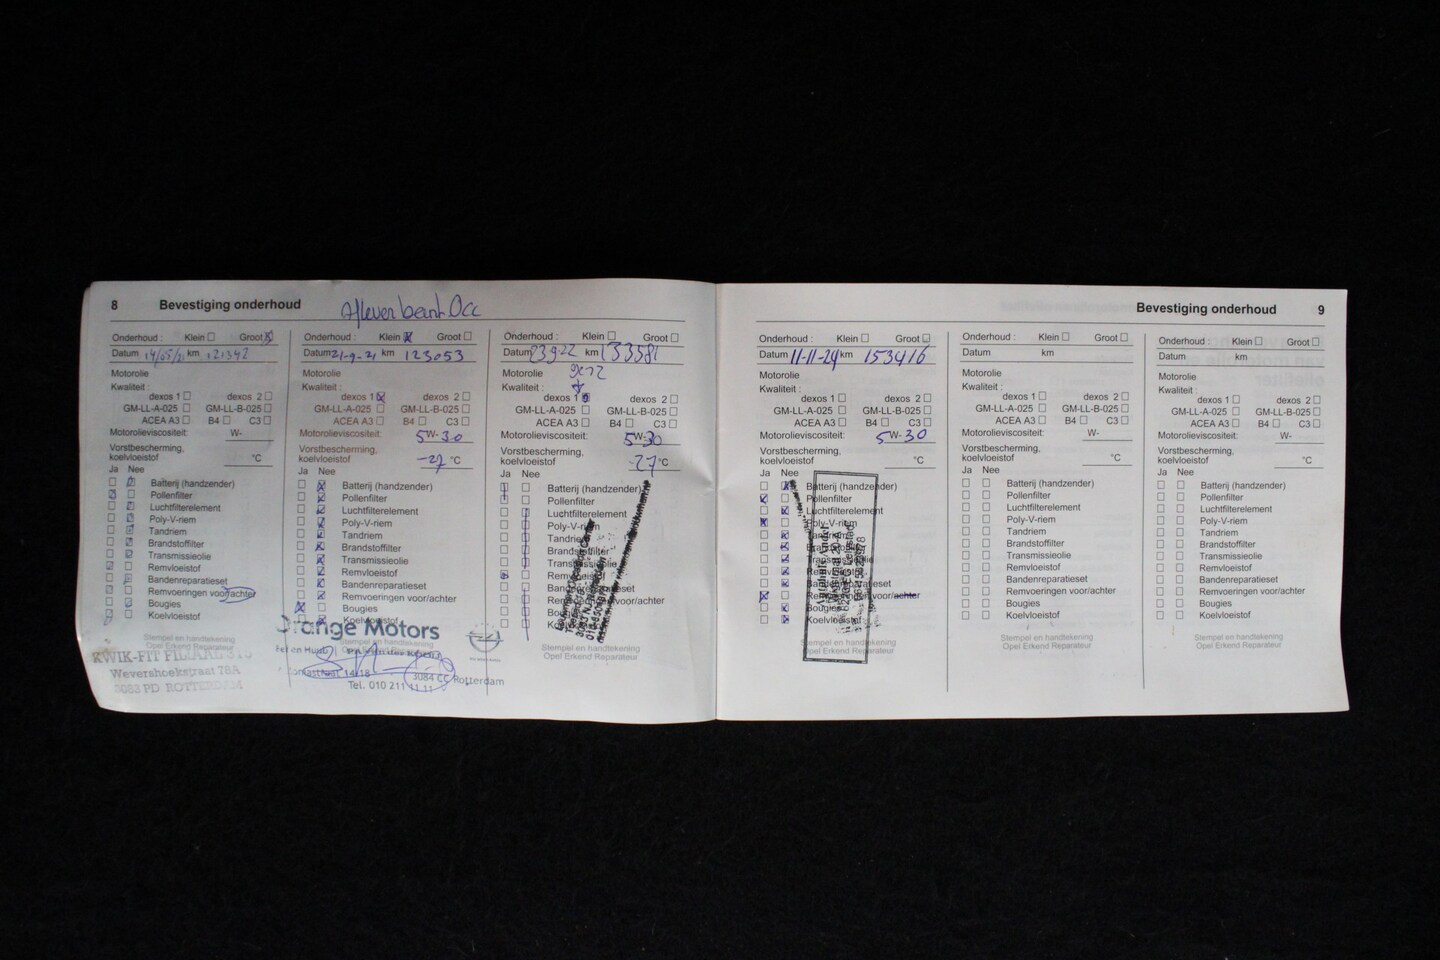 8 Bevestiging onderhoud
Onderhoud : Klein Groot
Datum 14/05/21 km 121342
Motorolie
Kwaliteit :
dexos 1 dexos 2
GM-LL-A-025 GM-LL-B-025
ACEA A3 B4 C3
Motorolieviscositeit: W-
Vorstbescherming,
koelvloeistof °C
Ja Nee
Batterij (handzender)
Pollenfilter
Luchtfilterelement
Poly-V-riem
Tandriem
Brandstoffilter
Transmissieolie
Remvloeistof
Bandenreparatieset
Remvoeringen voor/achter
Bougies
Koelvloeistof
Stempel en handtekening
Opel Erkend Reparateur
KWIK-FIT
Wevershoekstraat 78A
3083 PD ROTTERDAM
Onderhoud : Klein Groot
Datum 21-9-21 km 123053
Motorolie
Kwaliteit :
dexos 1 dexos 2
GM-LL-A-025 GM-LL-B-025
ACEA A3 B4 C3
Motorolieviscositeit: 5W-30
Vorstbescherming,
koelvloeistof -27 °C
Ja Nee
Batterij (handzender)
Pollenfilter
Luchtfilterelement
Poly-V-riem
Tandriem
Brandstoffilter
Transmissieolie
Remvloeistof
Bandenreparatieset
Remvoeringen voor/achter
Bougies
Koelvloeistof
Orange Motors
Stempel en handtekening
Opel Erkend Reparateur
14-18 3084 CC Rotterdam
Tel. 010 211 11 11
Onderhoud : Klein Groot
Datum 23-9-22 km 133581
Motorolie
Kwaliteit :
dexos 1 dexos 2
GM-LL-A-025 GM-LL-B-025
ACEA A3 B4 C3
Motorolieviscositeit: 5W-30
Vorstbescherming,
koelvloeistof -27 °C
Ja Nee
Batterij (handzender)
Pollenfilter
Luchtfilterelement
Poly-V-riem
Tandriem
Brandstoffilter
Transmissieolie
Remvloeistof
Bandenreparatieset
Remvoeringen voor/achter
Bougies
Koelvloeistof
Stempel en handtekening
Opel Erkend Reparateur
Bevestiging onderhoud 9
Onderhoud : Klein Groot
Datum 11-11-24 km 153416
Motorolie
Kwaliteit :
dexos 1 dexos 2
GM-LL-A-025 GM-LL-B-025
ACEA A3 B4 C3
Motorolieviscositeit: 5W-30
Vorstbescherming,
koelvloeistof °C
Ja Nee
Batterij (handzender)
Pollenfilter
Luchtfilterelement
Poly-V-riem
Tandriem
Brandstoffilter
Transmissieolie
Remvloeistof
Bandenreparatieset
Remvoeringen voor/achter
Bougies
Koelvloeistof
Stempel en handtekening
Opel Erkend Reparateur
Onderhoud : Klein Groot
Datum km
Motorolie
Kwaliteit :
dexos 1 dexos 2
GM-LL-A-025 GM-LL-B-025
ACEA A3 B4 C3
Motorolieviscositeit: W-
Vorstbescherming,
koelvloeistof °C
Ja Nee
Batterij (handzender)
Pollenfilter
Luchtfilterelement
Poly-V-riem
Tandriem
Brandstoffilter
Transmissieolie
Remvloeistof
Bandenreparatieset
Remvoeringen voor/achter
Bougies
Koelvloeistof
Stempel en handtekening
Opel Erkend Reparateur
Onderhoud : Klein Groot
Datum km
Motorolie
Kwaliteit :
dexos 1 dexos 2
GM-LL-A-025 GM-LL-B-025
ACEA A3 B4 C3
Motorolieviscositeit: W-
Vorstbescherming,
koelvloeistof °C
Ja Nee
Batterij (handzender)
Pollenfilter
Luchtfilterelement
Poly-V-riem
Tandriem
Brandstoffilter
Transmissieolie
Remvloeistof
Bandenreparatieset
Remvoeringen voor/achter
Bougies
Koelvloeistof
Stempel en handtekening
Opel Erkend Reparateur